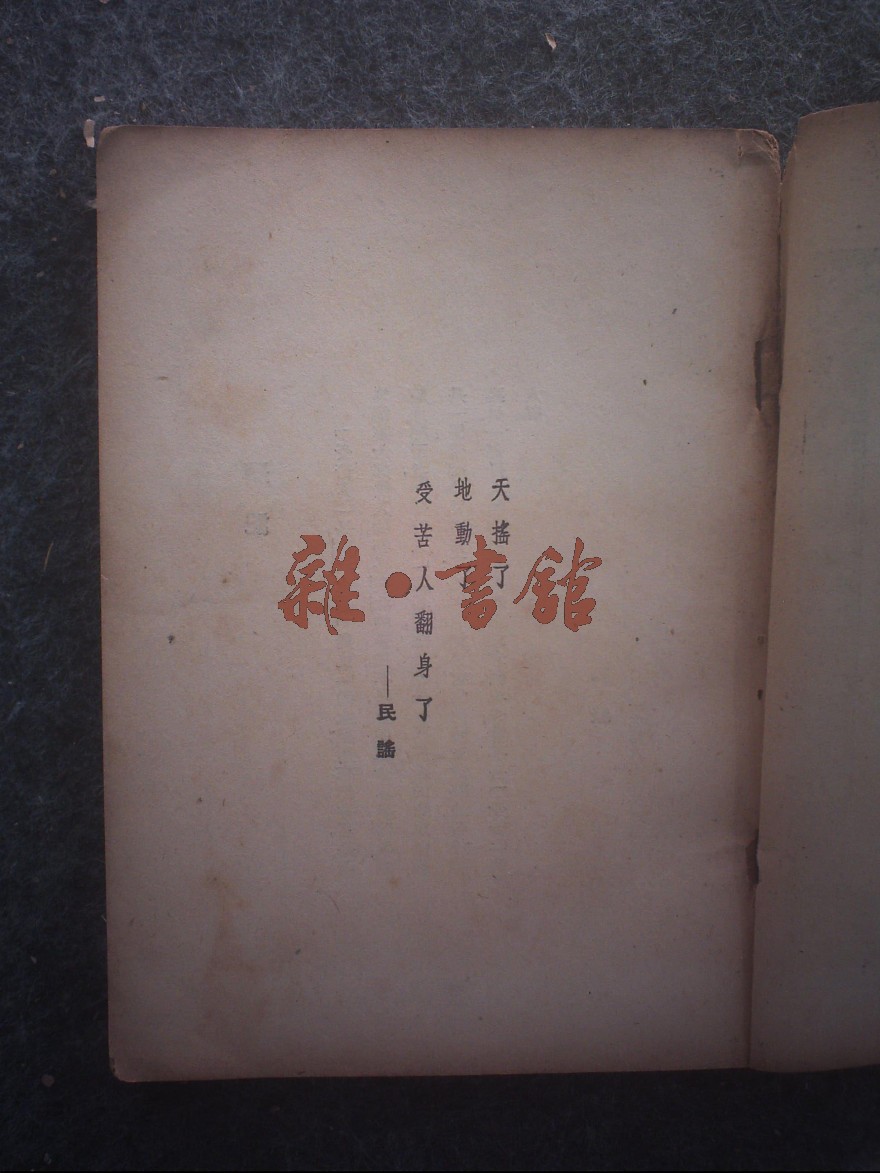 天搖了
地動了
受苦人翻身了
——民謠
雜·書館